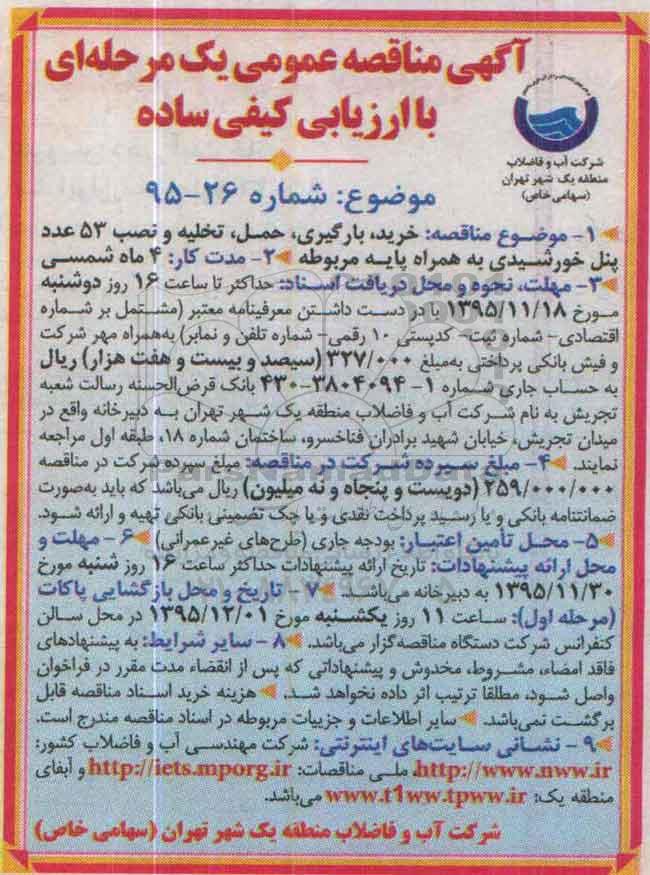 آگهی مناقصه عمومی یک مرحله‌ای
با ارزیابی کیفی ساده
شرکت آب و فاضلاب
منطقه یک شهر تهران
(سهامی خاص)
موضوع: شماره ۲۶-۹۵
۱- موضوع مناقصه: خرید، بارگیری، حمل، تخلیه و نصب ۵۳ عدد
پنل خورشیدی به همراه پایه مربوطه ۲- مدت کار: ۴ ماه شمسی
۳- مهلت، نحوه و محل دریافت اسناد: حداکثر تا ساعت ۱۶ روز دوشنبه
مورخ ۱۳۹۵/۱۱/۱۸ با در دست داشتن معرفینامه معتبر (مشتمل بر شماره
اقتصادی- شماره ثبت- کدپستی ۱۰ رقمی- شماره تلفن و نمابر) به‌همراه مهر شرکت
و فیش بانکی پرداختی به‌مبلغ ۳۲۷/۰۰۰ (سیصد و بیست و هفت هزار) ریال
به حساب جاری شماره ۱-۳۸۰۴۰۹۴-۴۳۰ بانک قرض‌الحسنه رسالت شعبه
تجریش به نام شرکت آب و فاضلاب منطقه یک شهر تهران به دبیرخانه واقع در
میدان تجریش، خیابان شهید برادران فناخسرو، ساختمان شماره ۱۸، طبقه اول مراجعه
نمایند. ۴- مبلغ سپرده شرکت در مناقصه: مبلغ سپرده شرکت در مناقصه
۲۵۹/۰۰۰/۰۰۰ (دویست و پنجاه و نه میلیون) ریال می‌باشد که باید به‌صورت
ضمانتنامه بانکی و یا رسید پرداخت نقدی و یا چک تضمینی بانکی تهیه و ارائه شود.
۵- محل تأمین اعتبار: بودجه جاری (طرح‌های غیرعمرانی) ۶- مهلت و
محل ارائه پیشنهادات: تاریخ ارائه پیشنهادات حداکثر ساعت ۱۶ روز شنبه مورخ
۱۳۹۵/۱۱/۳۰ به دبیرخانه می‌باشد. ۷- تاریخ و محل بازگشایی پاکات
(مرحله اول): ساعت ۱۱ روز یکشنبه مورخ ۱۳۹۵/۱۲/۰۱ در محل سالن
کنفرانس شرکت دستگاه مناقصه‌گزار می‌باشد. ۸- سایر شرایط: به پیشنهادهای
فاقد امضاء، مشروط، مخدوش و پیشنهاداتی که پس از انقضاء مدت مقرر در فراخوان
واصل شود، مطلقا ترتیب اثر داده نخواهد شد. هزینه خرید اسناد مناقصه قابل
برگشت نمی‌باشد. سایر اطلاعات و جزییات مربوطه در اسناد مناقصه مندرج است.
۹- نشانی سایت‌های اینترنتی: شرکت مهندسی آب و فاضلاب کشور:
http://www.nww.ir، ملی مناقصات: http://iets.mporg.ir و آبفای
منطقه یک: www.t1ww.tpww.ir می‌باشد.
شرکت آب و فاضلاب منطقه یک شهر تهران (سهامی خاص)